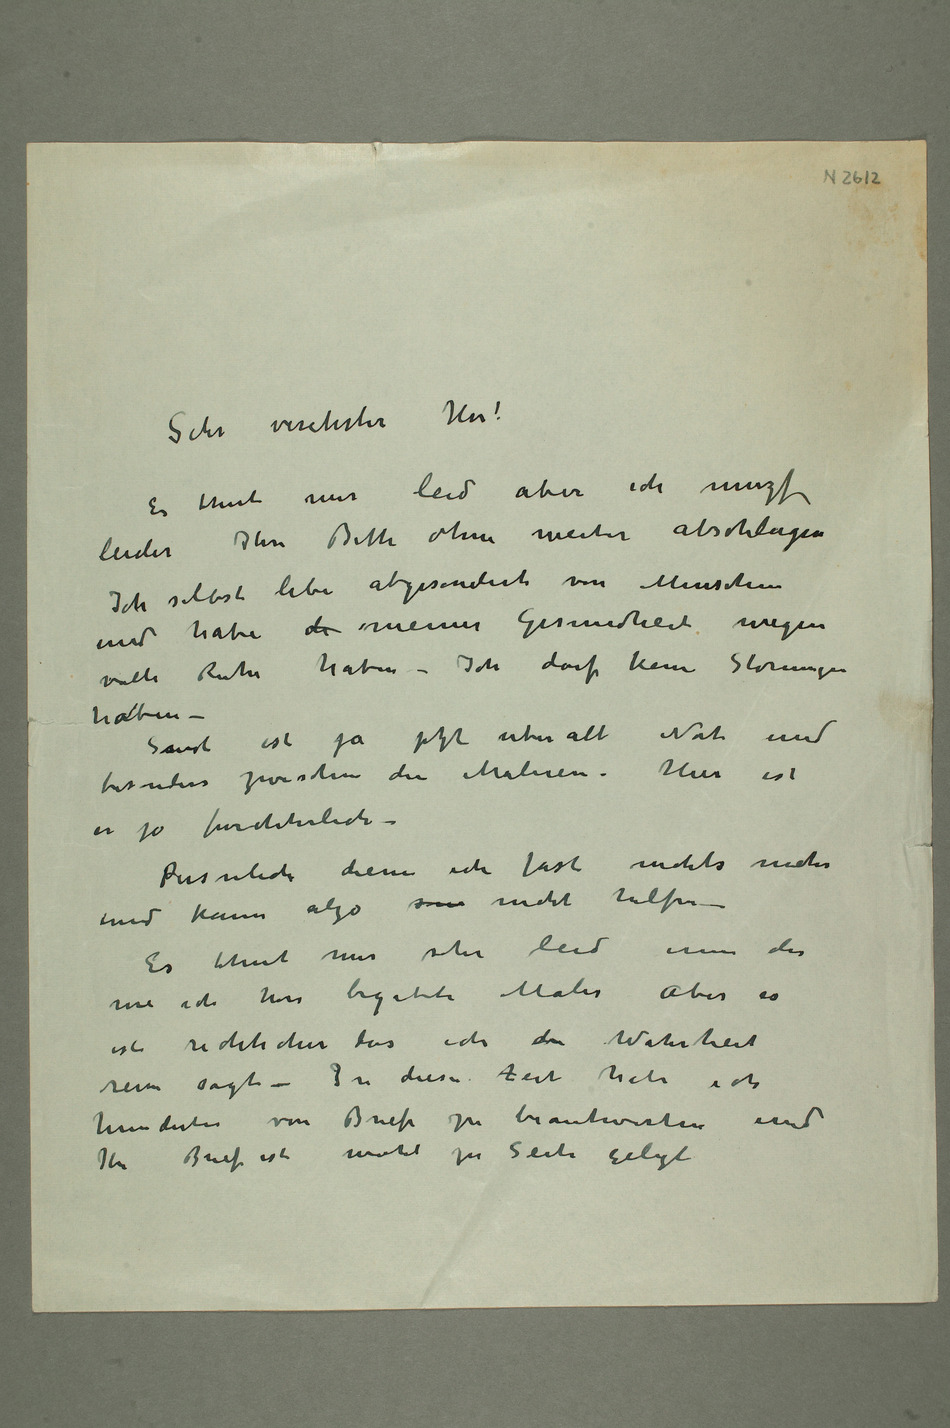 N 2612
Sehr verehrter Herr!
Es thut mir leid aber ich muzf
leider Ihre Bitte ohne weiter abschlagen
Ich selbst lebe abgesondert von Menschen
und habe die meiner Gesundheit wegen
volle Ruhe haben – Ich darf keine Störungen
haben –
Sonst ist ja jetzt uberall Not und
besonders zwischen den Maleren. Hier ist
es ja furchterlich –
Personlich diene ich fast nichts mehr
und kann algo nicht hilfen –
Es thut mir sehr leid
wie ich hore begabte Maler Aber es
ist richticher das ich die Wahrheit
rein sagt – In diese Zeit habe ich
hunderte von Briefe zu beantworten und
Ihr Brief ist wohl zu Seite gelegt